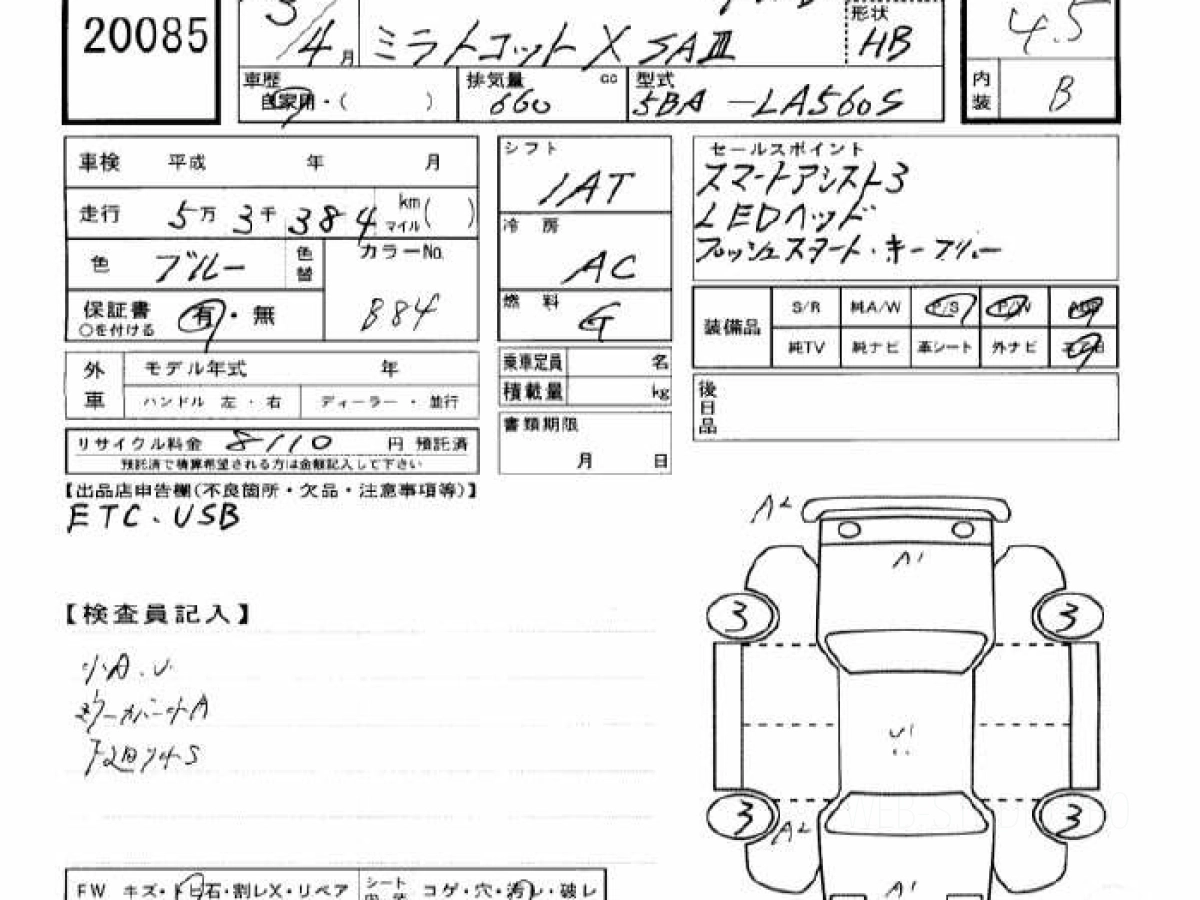 20085
3/4月
ミラトコット X SAⅢ
形状
HB
4.5
車歴
自家用・( )
排気量 cc
660
型式
5BA-LA560S
内装 B
車検 平成 年 月
走行 5万3千384 km マイル( )
色 ブルー 色替
カラーNo.
B84
保証書 有・無
○を付ける
外車
モデル年式 年
ハンドル 左・右 ディーラー・並行
リサイクル料金 8110 円 預託済
預託済で積算希望される方は金額記入して下さい
シフト
IAT
冷房
AC
燃料
G
乗車定員 名
積載量 kg
書類期限
月 日
セールスポイント
スマートアシスト3
LEDヘッド
プッシュスタート・キーフリー
装備品
S/R 純A/W P/S P/W
純TV 純ナビ 革シート 外ナビ
後日品
【出品店申告欄(不良箇所・欠品・注意事項等)】
ETC、USB
【検査員記入】
小A.U
ミラーカバーキA
A2
A1
3 3
U
3 3
A2
A1
FW キズ・トビ石・割レX・リペア
シート
コゲ・穴・汚レ・破レ